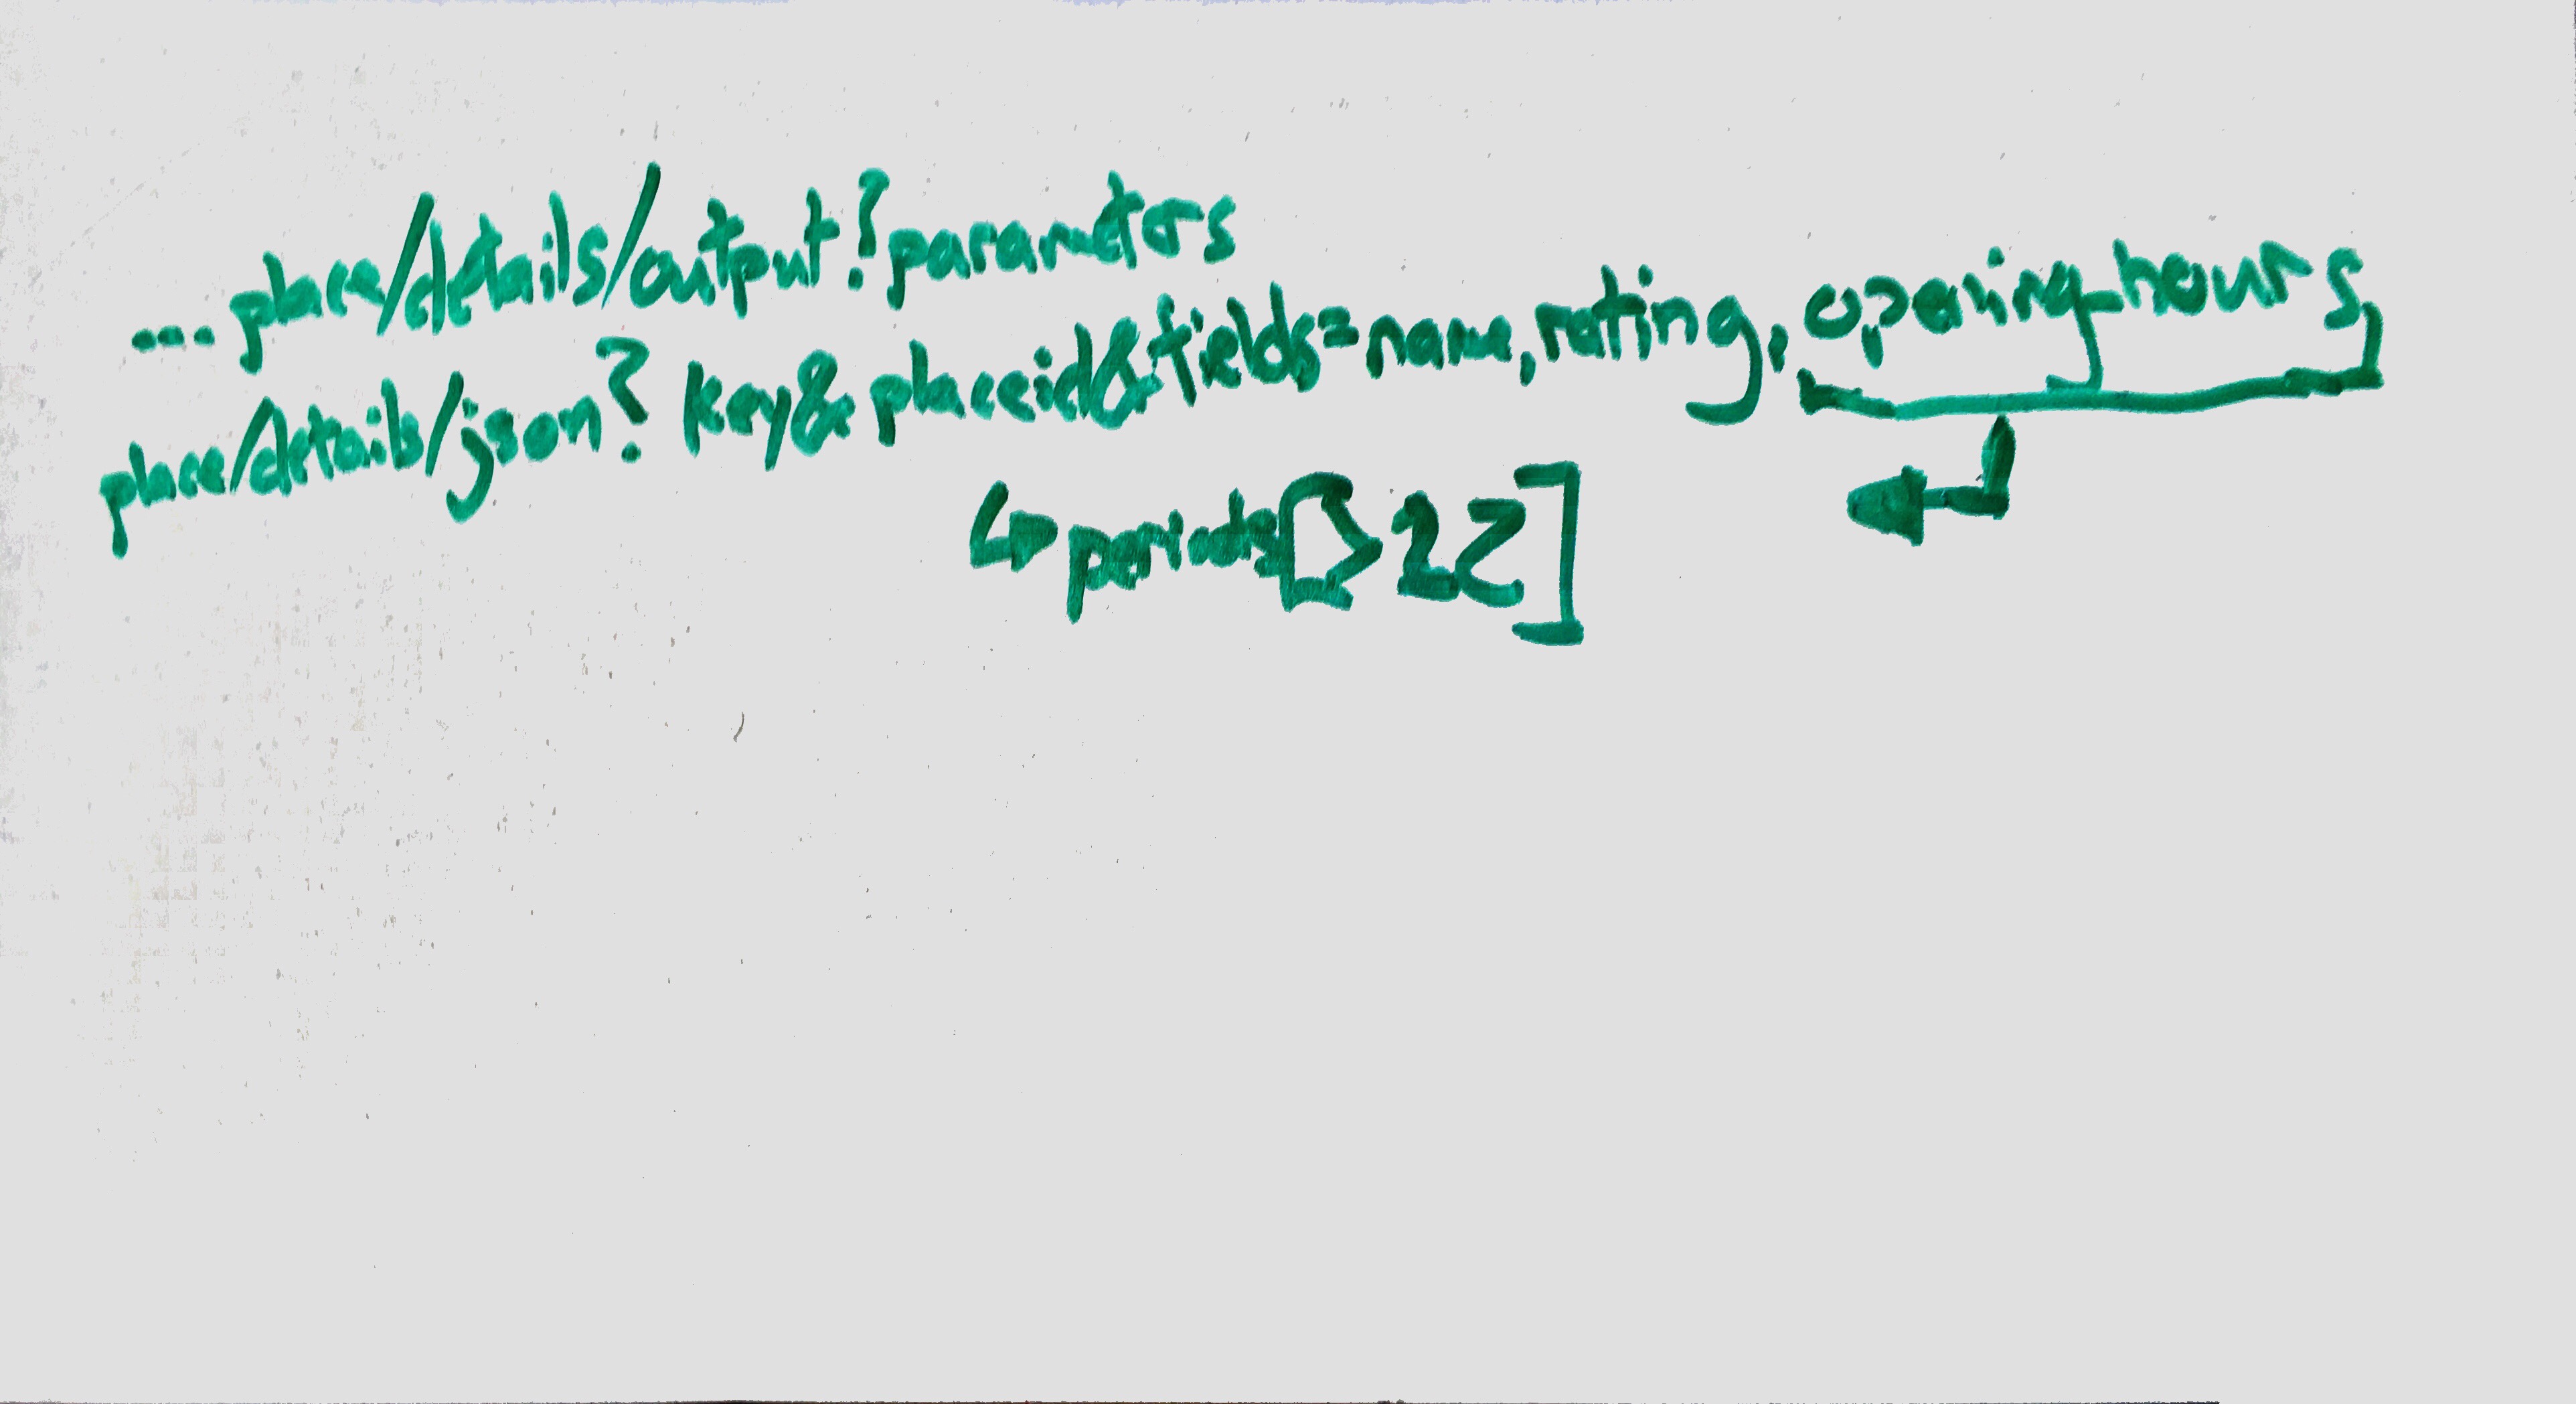 ... place/details/output?parameters
place/details/json? key&placeid&fields=name,rating,opening_hours
↳ periods[>22]